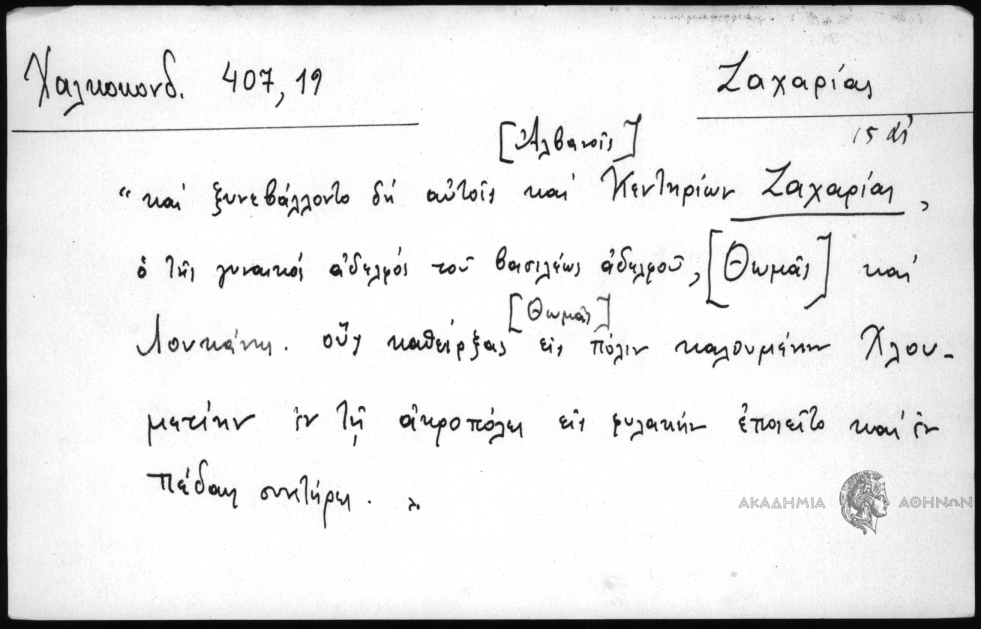 Χαλκοκονδ. 407, 19
Ζαχαρίας
15 αἰ
[Ἀλβανοῖς]
“ καί ξυνεβάλλοντο δή αὐτοῖς καί Κεντηρίων Ζαχαρίας,
ὁ τῆς γυναικός ἀδελφός τοῦ βασιλέως ἀδελφοῦ, [Θωμᾶς] καί
[Θωμᾶς]
Λουκάνης. οὕς καθείρξας εἰς πόλιν καλουμένην Χλου-
μετίην ἐν τῇ ἀκροπόλει εἰς φυλακήν ἐποιεῖτο καί ἐν
πέδαις συνετήρει.
ΑΚΑΔΗΜΙΑ ΑΘΗΝΩΝ